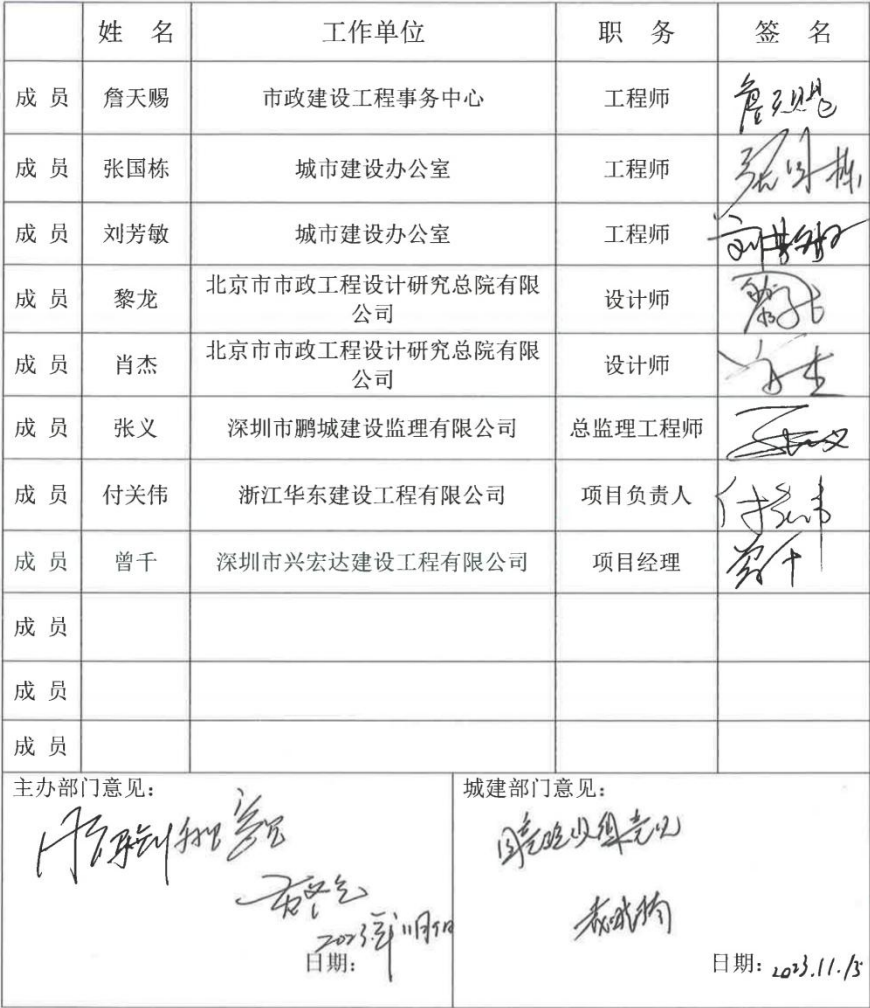 姓 名 工作单位 职 务 签 名
成 员 詹天赐 市政建设工程事务中心 工程师 詹天赐
成 员 张国栋 城市建设办公室 工程师 张国栋
成 员 刘芳敏 城市建设办公室 工程师 刘芳敏
成 员 黎龙 北京市市政工程设计研究总院有限
公司 设计师 黎龙
成 员 肖杰 北京市市政工程设计研究总院有限
公司 设计师 肖杰
成 员 张义 深圳市鹏城建设监理有限公司 总监理工程师 张义
成 员 付关伟 浙江华东建设工程有限公司 项目负责人 付关伟
成 员 曾千 深圳市兴宏达建设工程有限公司 项目经理 曾千
成 员
成 员
成 员
主办部门意见：
2023年11月
日期：
城建部门意见：
同意验收组意见
日期：2023.11.15